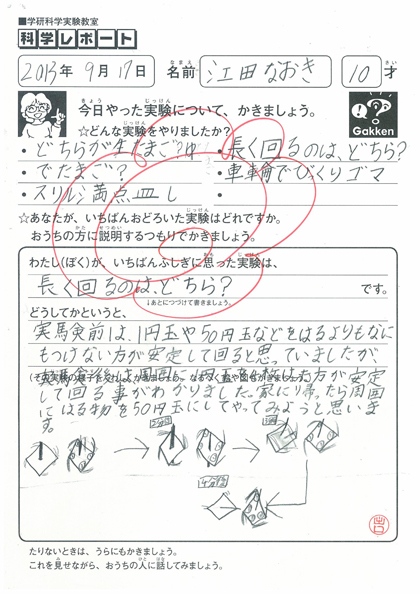 ■学研科学実験教室
科学レポート
2013年 9月 17日 名前 江田なおき 10才
今日やった実験について、かきましょう。
☆どんな実験をやりましたか?
・どちらが生たまご?ゆ
・でたまご?
・スリルジ満点皿し
・長く回るのは、どちら?
・車輪でびっくりゴマ
・
Gakken
☆あなたが、いちばんおどろいた実験はどれですか。
おうちの方に説明するつもりでかきましょう。
わたし(ぼく)が、いちばんふしぎに思った実験は、
長く回るのは、どちら? です。
↓あとにつづけて書きましょう。
どうしてかというと、
実験前は、1円玉や50円玉などをはるよりもなに
もつけない方が安定して回ると思っていましたが、
実験後は周囲に1円玉を4枚はった方が安定
して回る事がわかりました。家に帰ったら周囲
にはる物を50円玉にしてやってみようと思いま
す。
たりないときは、うらにもかきましょう。
これを見せながら、おうちの人に話してみましょう。